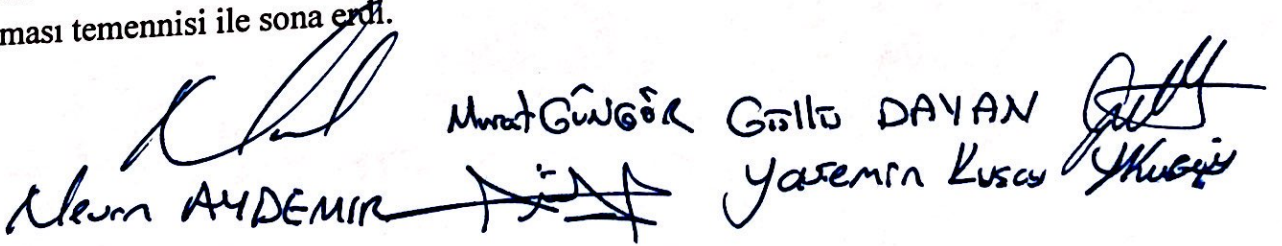 ması temennisi ile sona erdi.
Murat GÜNGÖR Güllü DAYAN
AYDEMİR Yasemin Kuşcu